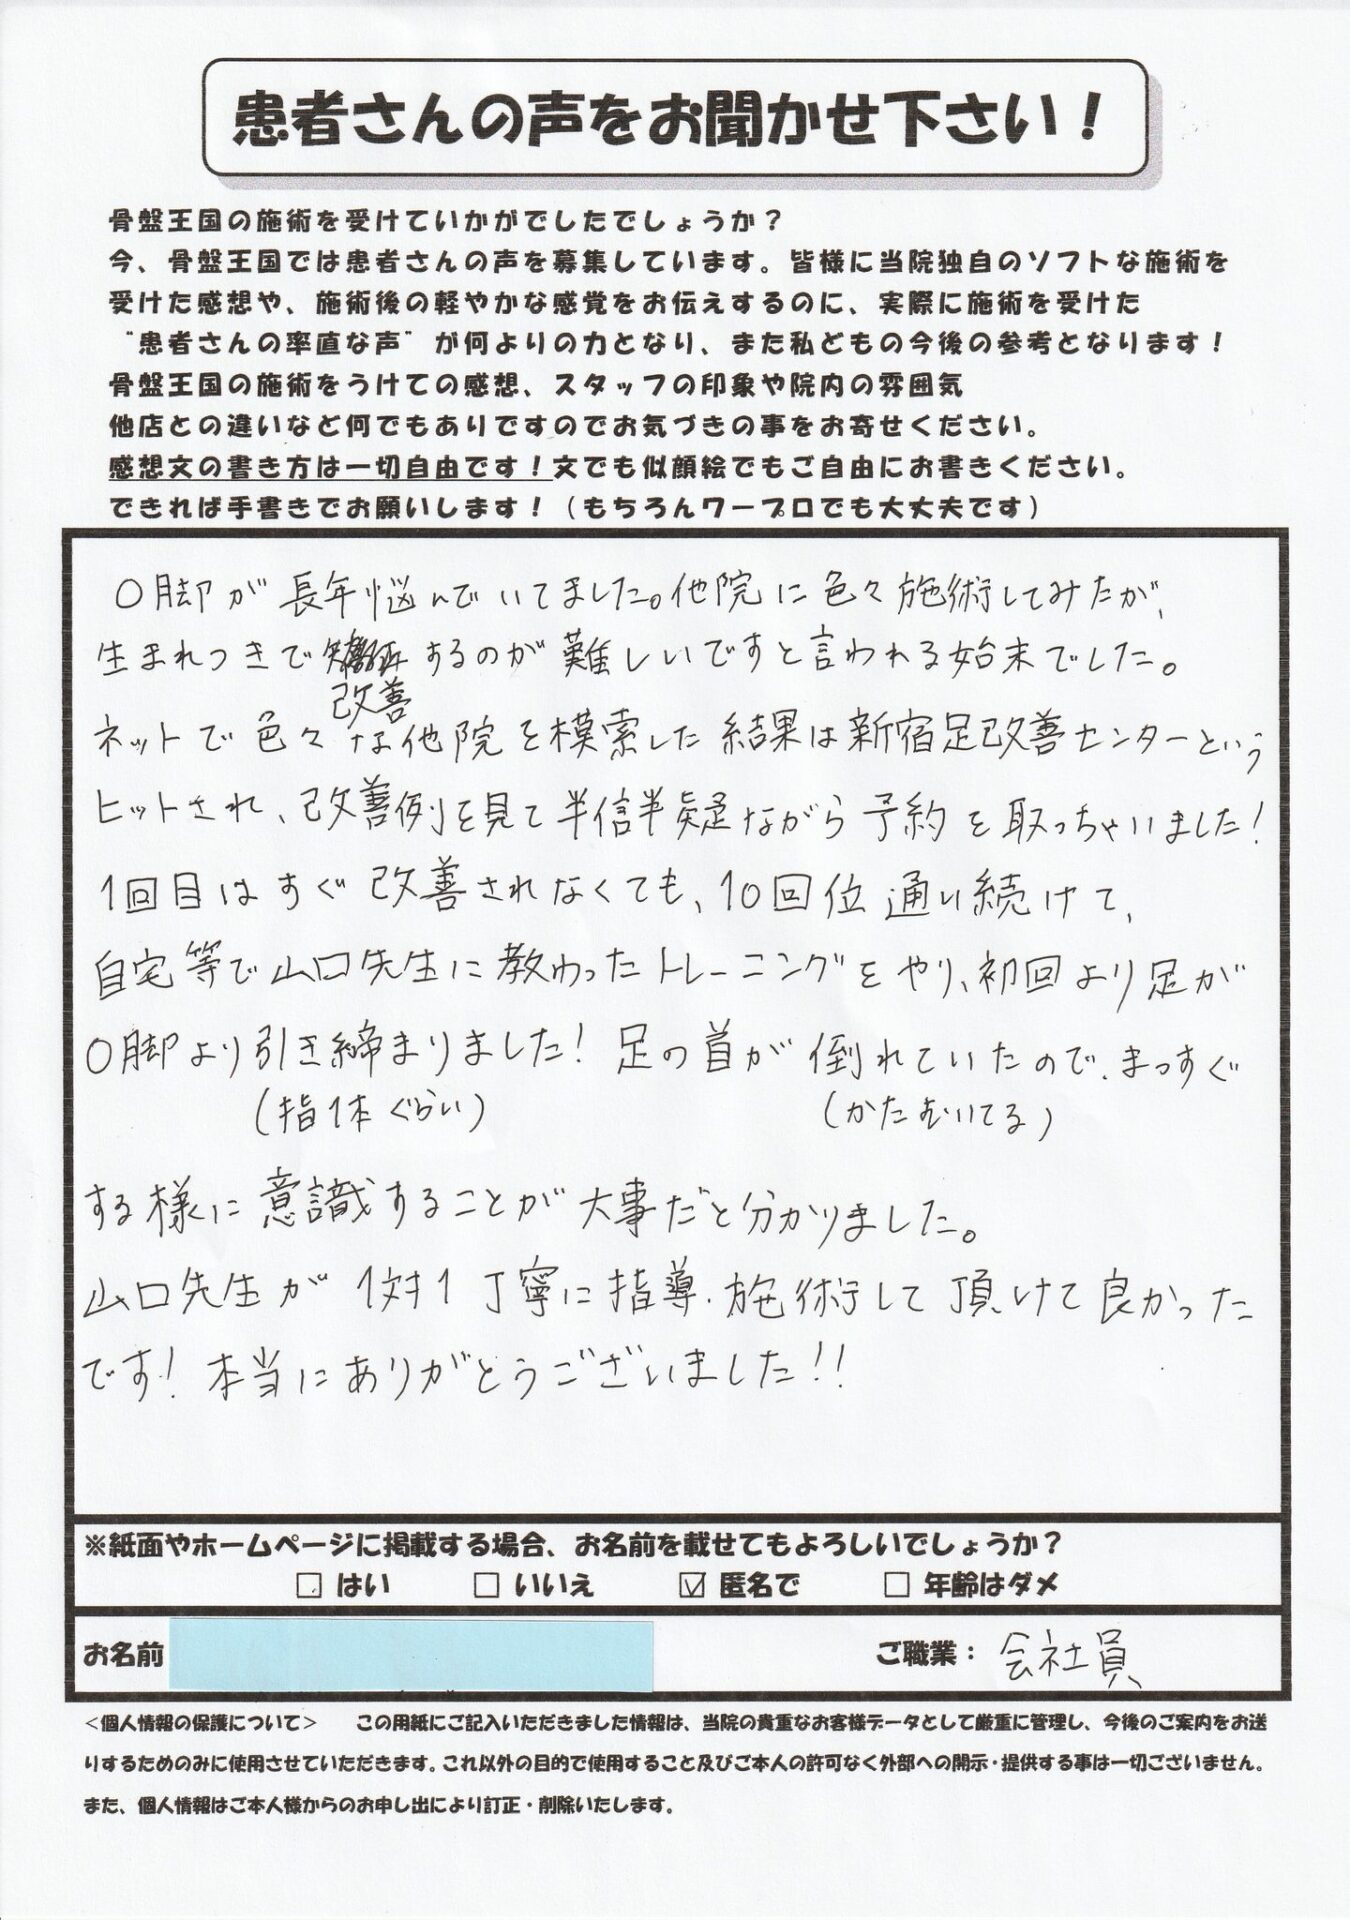 患者さんの声をお聞かせ下さい！
骨盤王国の施術を受けていかがでしたでしょうか？
今、骨盤王国では患者さんの声を募集しています。皆様に当院独自のソフトな施術を
受けた感想や、施術後の軽やかな感覚をお伝えするのに、実際に施術を受けた
“患者さんの率直な声”が何よりの力となり、また私どもの今後の参考となります！
骨盤王国の施術をうけての感想、スタッフの印象や院内の雰囲気
他店との違いなど何でもありですのでお気づきの事をお寄せください。
感想文の書き方は一切自由です！文でも似顔絵でもご自由にお書きください。
できれば手書きでお願いします！（もちろんワープロでも大丈夫です）
O脚が長年悩んでいてました。他院に色々施術してみたが、
生まれつきで するのが難しいですと言われる始末でした。
改善
ネットで色々な他院を模索した結果は新宿足改善センターという
ヒットされ、改善例を見て半信半疑ながら予約を取っちゃいました！
1回目はすぐ改善されなくても、10回位通い続けて、
自宅等で山口先生に教わったトレーニングをやり、初回より足が
O脚より引き締まりました！足の首が倒れていたので、まっすぐ
（指1本ぐらい）（かたむいてる）
する様に意識することが大事だと分かりました。
山口先生が1対1丁寧に指導・施術して頂けて良かった
です！本当にありがとうございました！！
※紙面やホームページに掲載する場合、お名前を載せてもよろしいでしょうか？
□はい □いいえ ☑匿名で □年齢はダメ
お名前 ご職業：会社員
＜個人情報の保護について＞ この用紙にご記入いただきました情報は、当院の貴重なお客様データとして厳重に管理し、今後のご案内をお送
りするためのみに使用させていただきます。これ以外の目的で使用すること及びご本人の許可なく外部への開示・提供する事は一切ございません。
また、個人情報はご本人様からのお申し出により訂正・削除いたします。